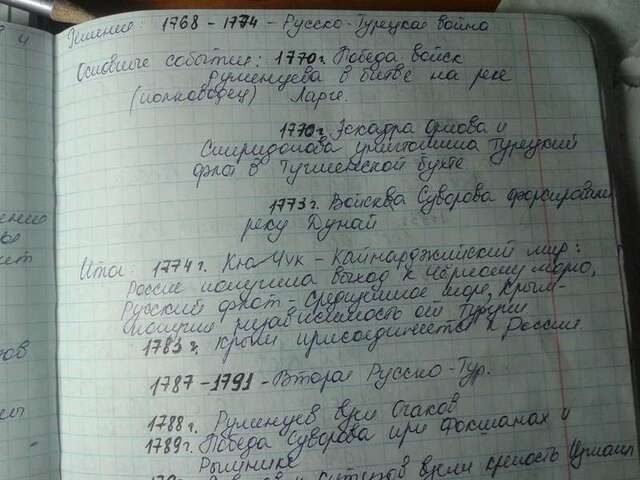 Решение: 1768 - 1774 - Русско-Турецкая война
Основные события: 1770г. Победа войск
Румянцева в битве на реке
(полководец) Ларге.
1770г. Эскадра Орлова и
Спиридонова уничтожила Турецкий
флот в Чесменской бухте.
1773г. Войска Суворова форсировали
реку Дунай
Итог: 1774г. Кючук-Кайнарджийский мир:
Россия получила выход к Чёрному морю,
Русский флот - Средиземное море, Крым-
получил независимость от Турции
1783 г. Крым присоединяется к России.
1787 - 1791 - Вторая Русско-Тур.
1788г. Румянцев взял Очаков
1789г. Победа Суворова при Фокшанах и
Рымнике
и Кутузов взяли крепость Измаил